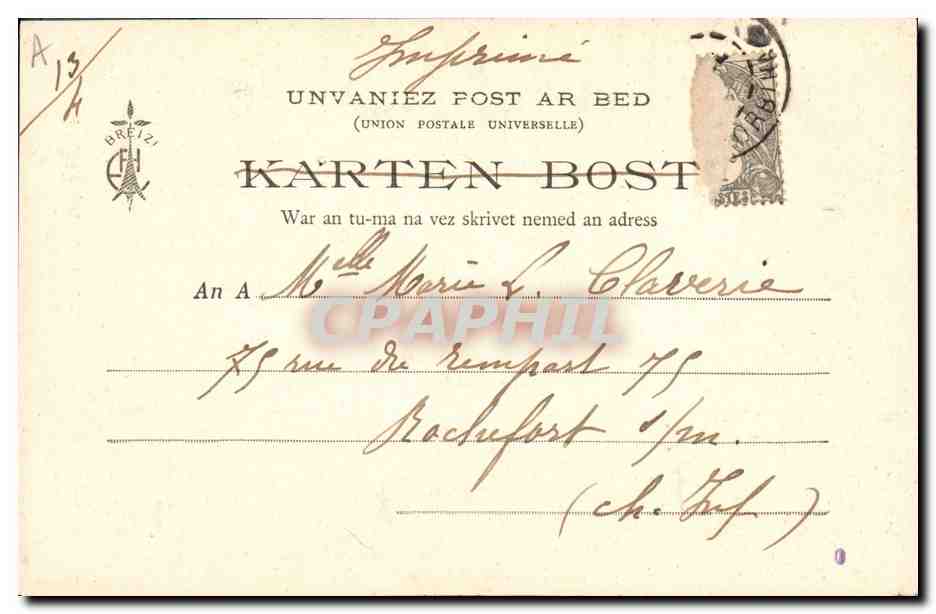 A
13/4
Imprimé
UNVANIEZ POST AR BED
(UNION POSTALE UNIVERSELLE)
BREIZ
KARTEN BOST
War an tu-ma na vez skrivet nemed an adress
An A Melle Marie L. Claverie
CPAPHIL
75 rue du rempart 75
Rochefort s/m.
(Ch. Inf)